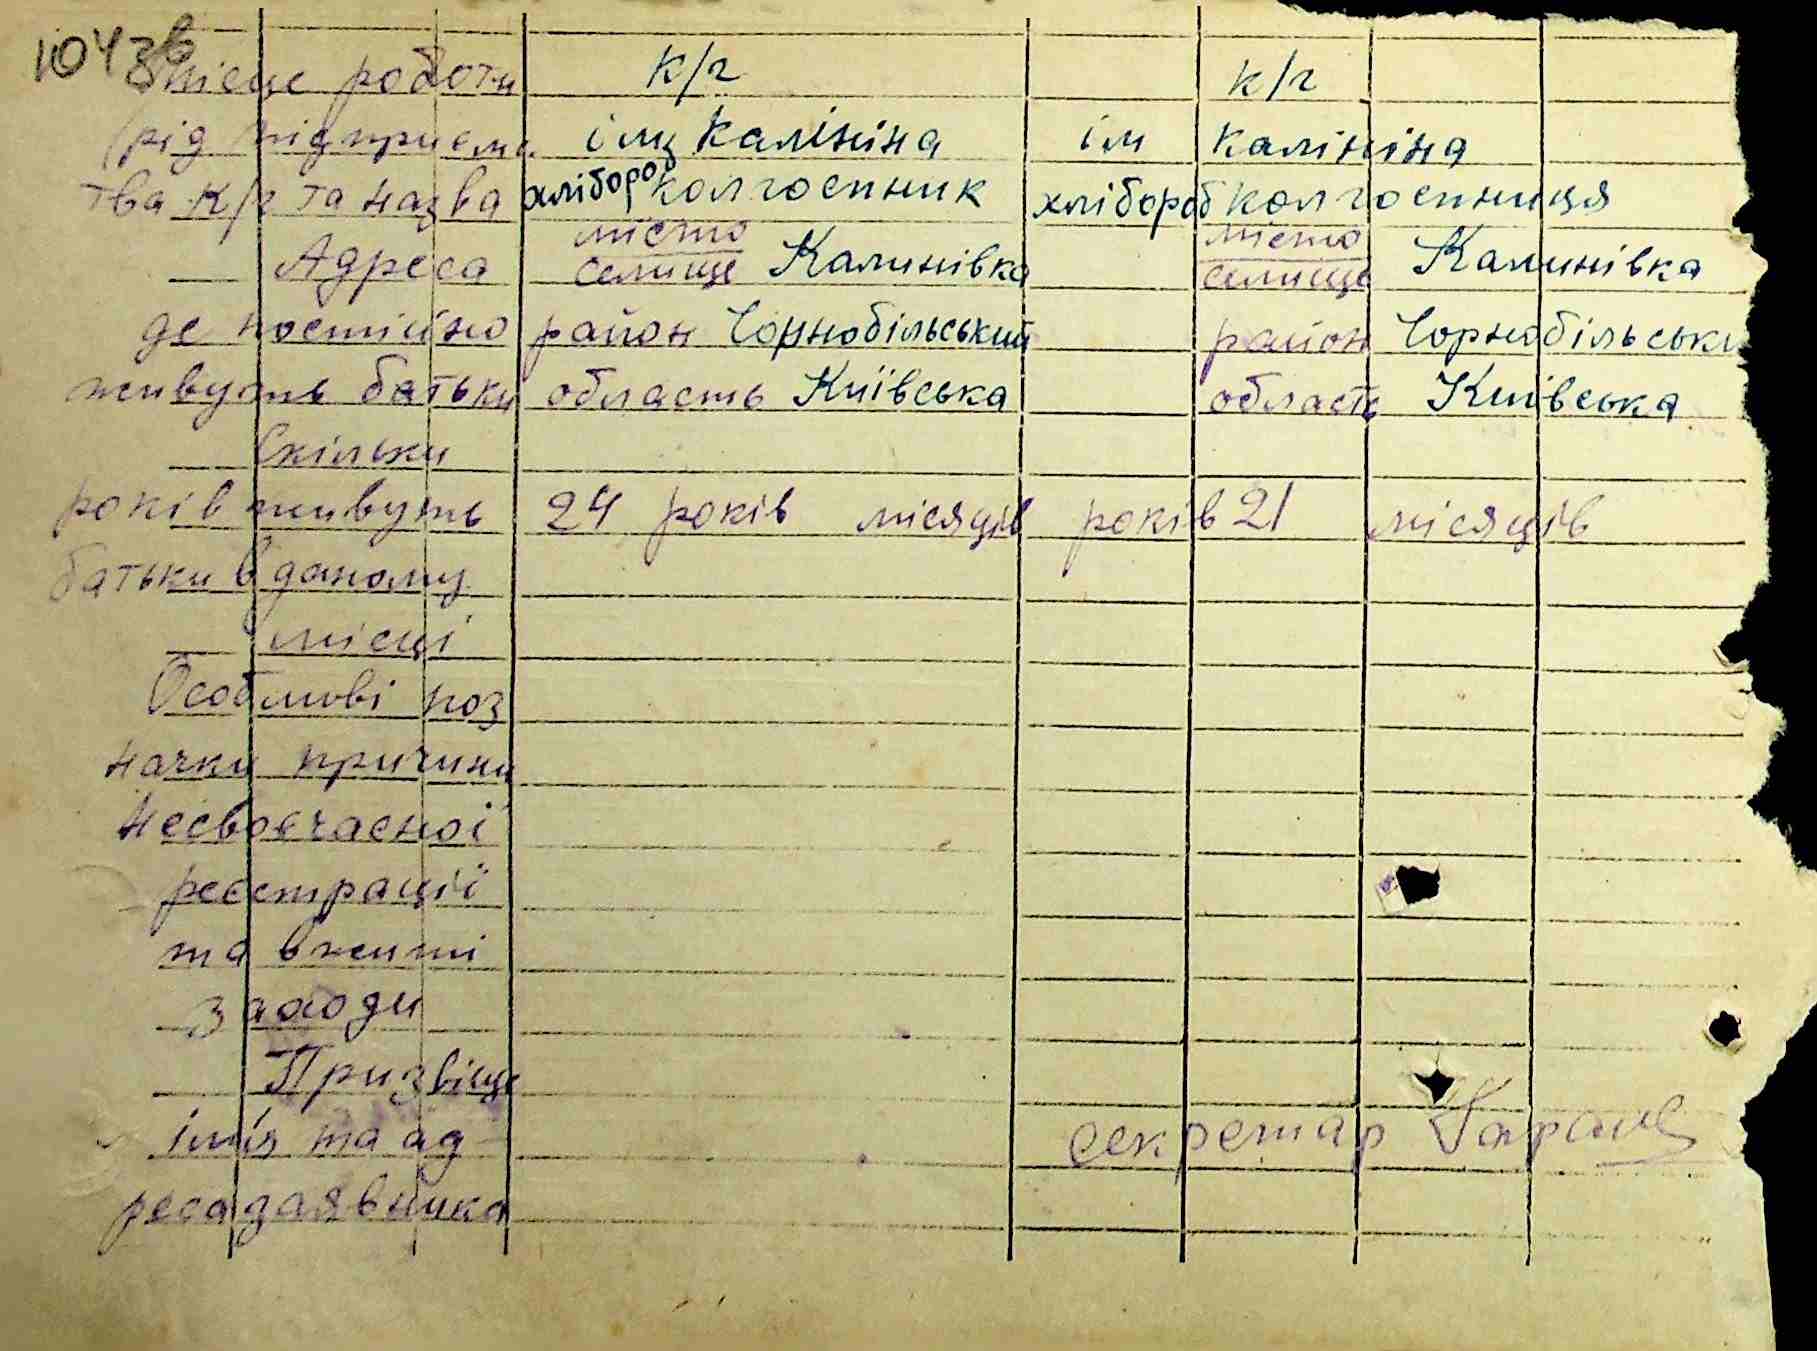 104зв
Місце роботи к/г к/г
(рід підприємс ім Калініна ім Калініна
тва к/г та назва хлібороб колгоспник хлібороб колгоспниця
місто місто
Адреса селище Калинівка селище Калинівка
де постійно район Чорнобільський район Чорнобільськи
живуть батьки область Київська область Київська
Скільки
років живуть 24 років місяців років 21 місяців
батьки в даному
місці
Особливі поз
начки причини
несвоєчасної
реєстрації
та вжиті
заходи
Призвіще
імя та ад
реса заявника секретар